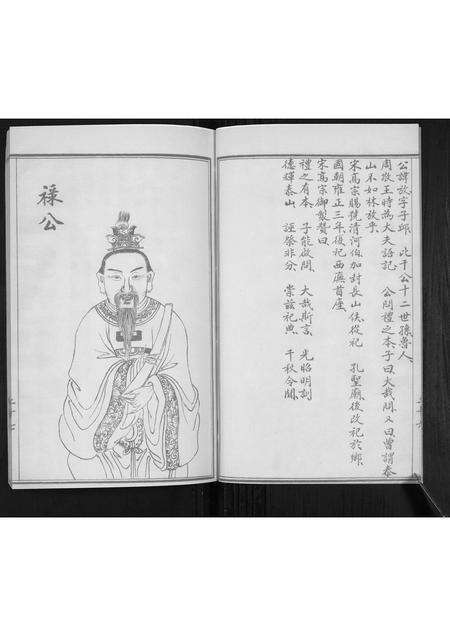 公諱放字子邱、比干公十二世孫魯人、
周敬王時為大夫語記 公問禮之本子曰大哉問又曰曾謂泰
山不如林放乎
宋真宗賜號清河伯加封長山侯從祀 孔聖廟後改祀於鄉
國朝雍正三年復祀西廡首座
宋高宗御製贊曰
禮之有本、子能啟問、大哉斯言、光昭明訓
德輝泰山、誣祭非分、崇兹祀典、千秋令聞、
祿公